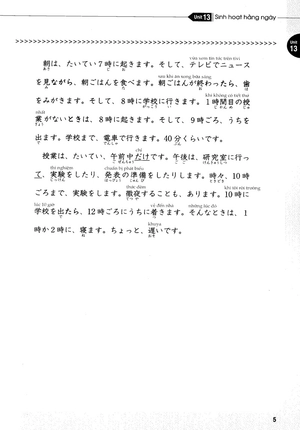 Unit 13 Sinh hoạt hằng ngày
Unit 13
vừa xem tin tức trên tivi
朝は、たいてい7時に起きます。そして、テレビでニュース
sau khi ăn xong bữa sáng
を見ながら、朝ごはんを食べます。朝ごはんが終わったら、歯
khi không có tiết thứ
をみがきます。そして、8時に学校に行きます。1時間目の授
nhất
業がないときは、8時に起きます。そして、9時ごろ、うちを
出ます。学校まで、電車で行きます。40分くらいです。
chỉ
授業は、たいてい、午前中だけです。午後は、研究室に行っ
thí nghiệm chuẩn bị phát biểu
て、実験をしたり、発表の準備をしたりします。時々、10時
thức đêm khi rời trường
ごろまで、実験をします。徹夜することも、あります。10時に
lúc 12 giờ về đến nhà những lúc đó
学校を出たら、12時ごろにうちに着きます。そんなときは、1
khuya
時か2時に、寝ます。ちょっと、遅いです。
5